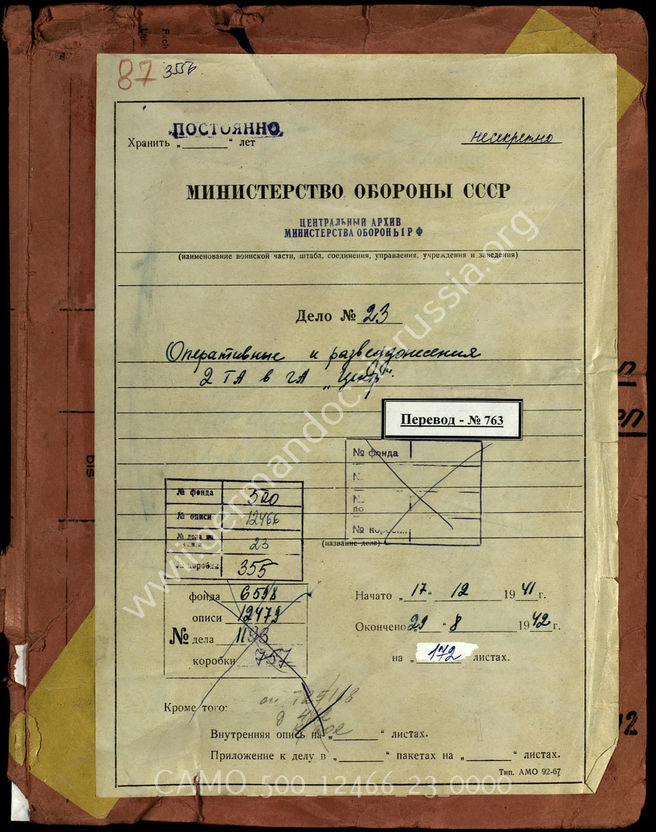 87 355.
Хранить „ПОСТОЯННО“ лет
несекретно
МИНИСТЕРСТВО ОБОРОНЫ СССР
ЦЕНТРАЛЬНЫЙ АРХИВ
МИНИСТЕРСТВА ОБОРОНЫ РФ
(наименование воинской части, штаба, соединения, управления, учреждения и заведения)
Дело № 23
Оперативные и разведдонесения
2 ТА в ГА „Центр“.
Перевод - № 763
№ фонда
№
№
по
№ коробки
(название дела)
№ фонда 500
№ описи 12466
№ дела по
описи 23
№ коробки 355
фонда 6598
описи 12473
№ дела 1193
коробки 757
Начато „17“ 12 1941 г.
Окончено 29 " 8 1942 г.
на „172“ листах.
Кроме того:
оп.
Внутренняя опись на „ “ листах.
Приложение к делу в „ “ пакетах на „ “ листах.
Тип. АМО 92-67
www.germandocsinrussia.org
CAMO_500_12466_23_0000